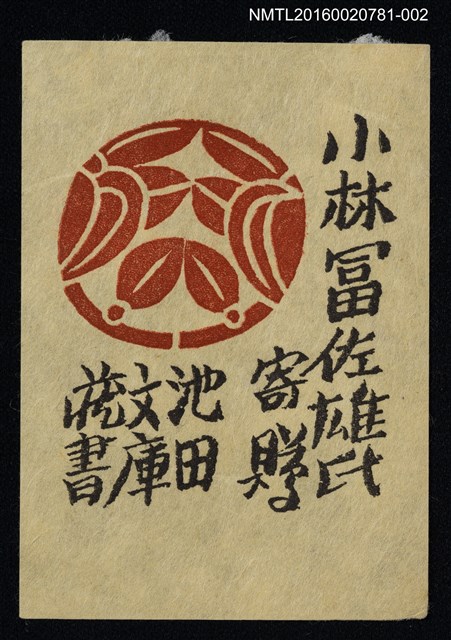 NMTL20160020781-002
小林冨佐雄氏
寄贈
池田
文庫
蔵書